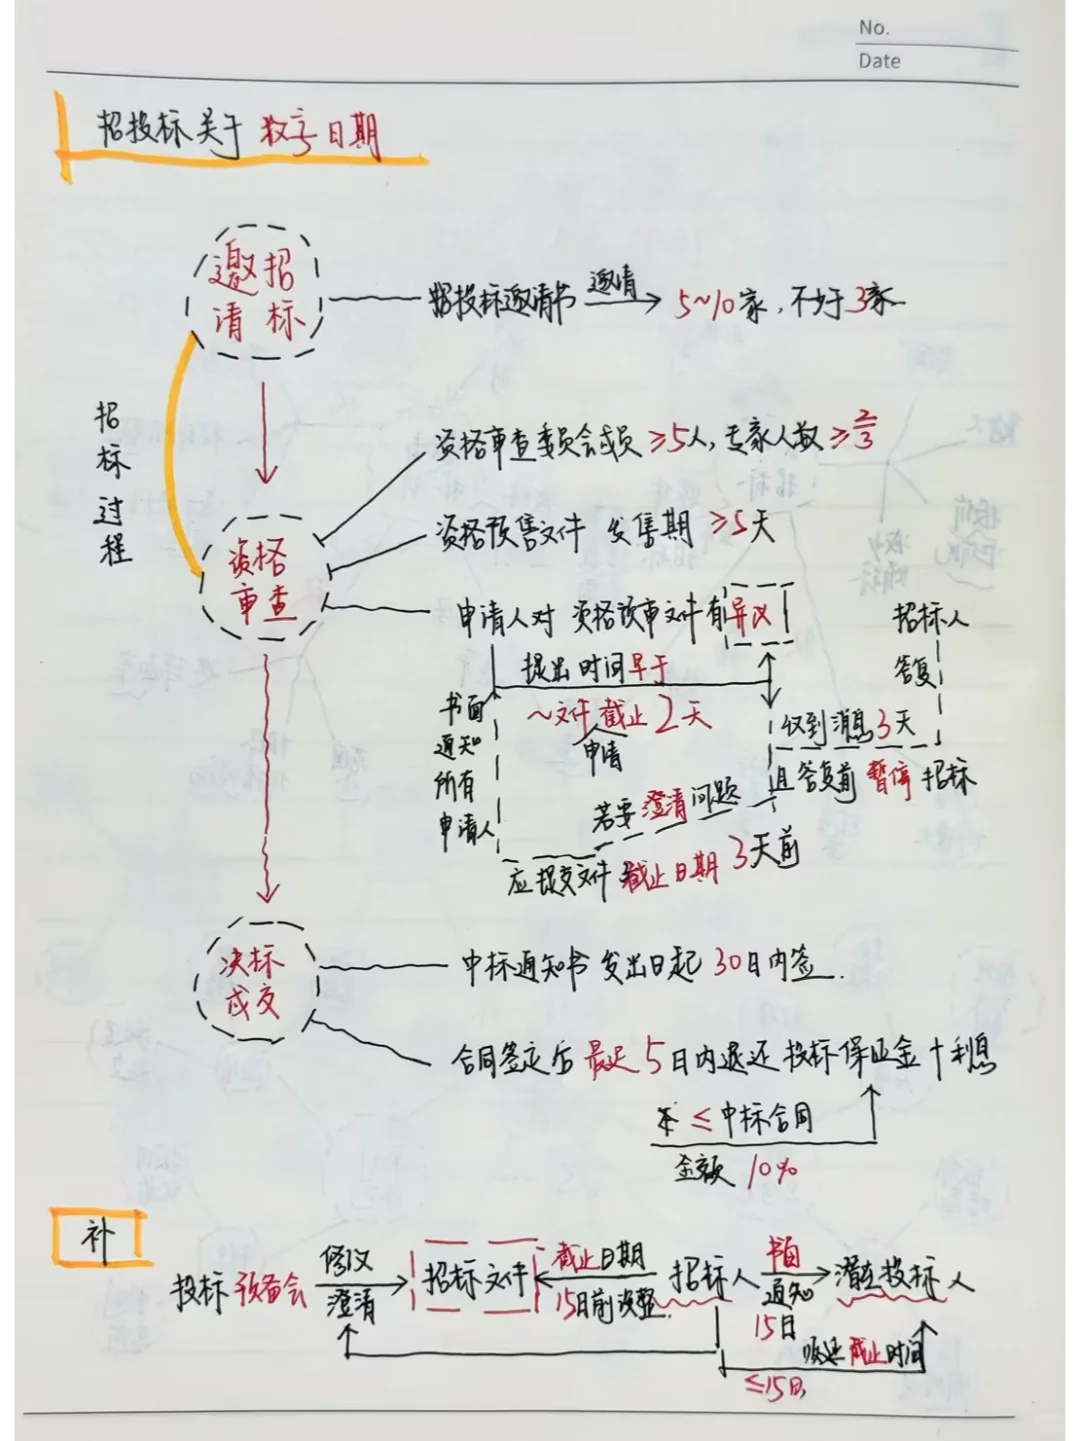 No.
Date
招投标关于 数字日期
邀请招标
招投标邀请书 邀请 5~10家，不少于3家
招标过程
资格审查委员会成员≥5人，专家人数≥2/3
资格预售文件 发售期 ≥5天
资格审查
申请人对 资格预审文件有异议
招标人答复
提出时间早于
~文件截止2天
申请
书面通知所有申请人
收到消息3天
且答复前 暂停 招标
若要 澄清问题
应提交文件 截止日期 3天前
决标成交
中标通知书 发出日起 30日内签.
合同签定后 最迟 5日内退还 投标保证金+利息
本 ≤ 中标合同
金额 10%
补
投标 预备会 修改 澄清 招标文件 截止日期 15日前调整 招标人 书面 通知 潜在投标人
15日
顺延 截止时间
≤15日,